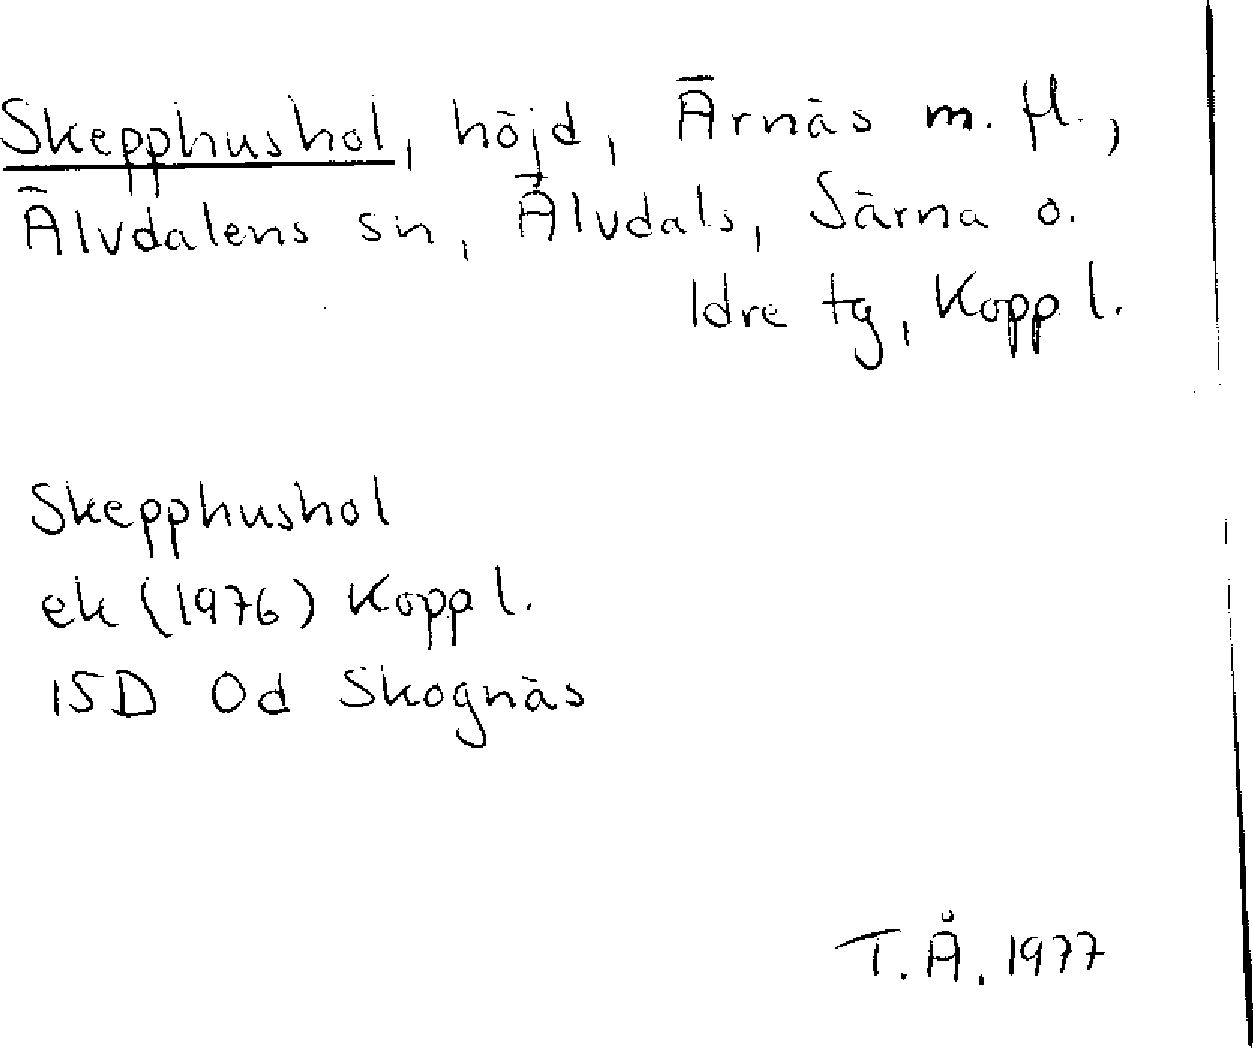 Skepphushol, höjd, Ärnäs m. fl.,
Älvdalens sn, Älvdals, Särna o.
Idre tg, Kopp l.
Skepphushol
ek (1976) Kopp l.
15D 0d Skognäs
T.Å. 1977